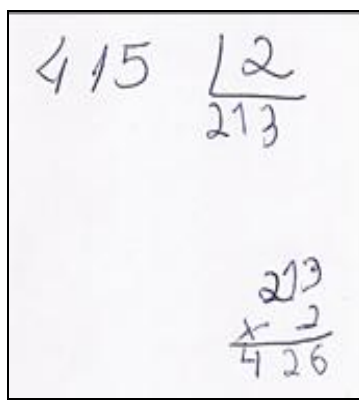 415 2
213
213
x 2
426